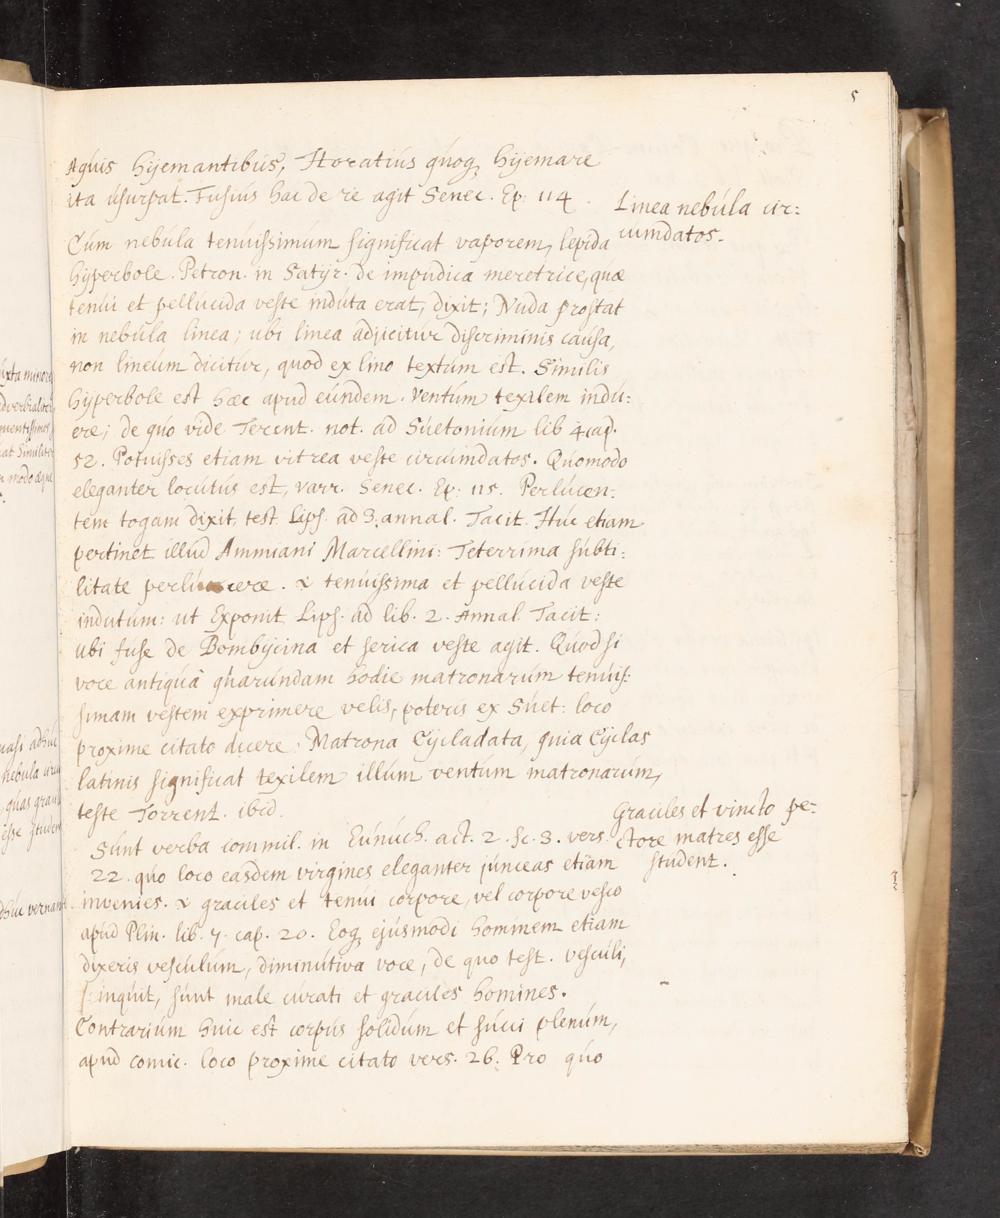 5
Aquis hyemantibus, Horatius quoq hyemare
ita usurpat. Fusius hac de re agit Senec. Ep. 114.
Linea nebula cir:
cumdatos.
Cum nebula tenuissimum significat vaporem, lepida
hyperbole. Petron. in Satyr. de impudica meretrice, quæ
tenui et pellucida veste induta erat, dixit; Nuda prostat
in nebula linea; ubi linea adjicitur discriminis causa,
non lineum dicitur, quod ex lino textum est. Similis
hyperbole est hæc apud eundem. Ventum texilem indu:
ere; de quo vide Terent. not. ad Suetonium lib 4 cap.
52. Potuisses etiam vitrea veste circumdatos. Quomodo
eleganter locutus est, varr. Senec. Ep: 115. Perlucen:
tem togam dixit, test. Lips. ad 3. annal. Tacit. Huc etiam
pertinet illud Ammiani Marcellini: Teterrima subti:
litate perlucere. & tenuissima et pellucida veste
indutum: ut Exponit Lips. ad lib. 2. Annal Tacit:
ubi fuse de Bombycina et serica veste agit. Quod si
voce antiquâ quarundam hodie matronarum tenuis:
simam vestem exprimere velis, poteris ex Suet: loco
proxime citato dicere: Matrona Cycladata, quia Cyclas
latinis significat texilem illum ventum matronarum,
teste Torrent. ibid.
Graciles et vincto pe:
ctore matres esse
student.
Sunt verba commil. in Eunuch. act. 2. sc. 3. vers.
22. quo loco easdem virgines eleganter junceas etiam
invenies. & graciles et tenui corpore, vel corpore vesco
apud Plin. lib. 7. cap. 20. Eoq ejusmodi hominem etiam
dixeris vesculum, diminutiva voce, de quo test. vesculi,
inquit, sunt male curati et graciles homines.
Contrarium huic est corpus solidum et succi plenum,
apud comic. loco proxime citato vers. 26. Pro quo